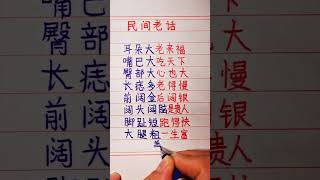 民间老话
耳朵大老来福
嘴巴大吃天下
臀部大心也大
长痣多老得慢
前阔金后阔银
阔头阔脑是贵人
脚趾短跑得快
大腿粗一生富